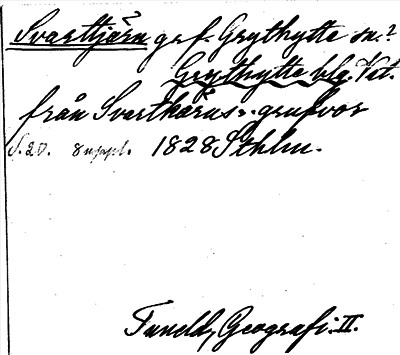 Svarttjärn grf. Grythytte sn.?
Grythytte blg. Vstl.
från Svartkärns- grufvor
S. 20. 8 uppl. 1828 Sthlm.
Tuneld, Geografi. II.